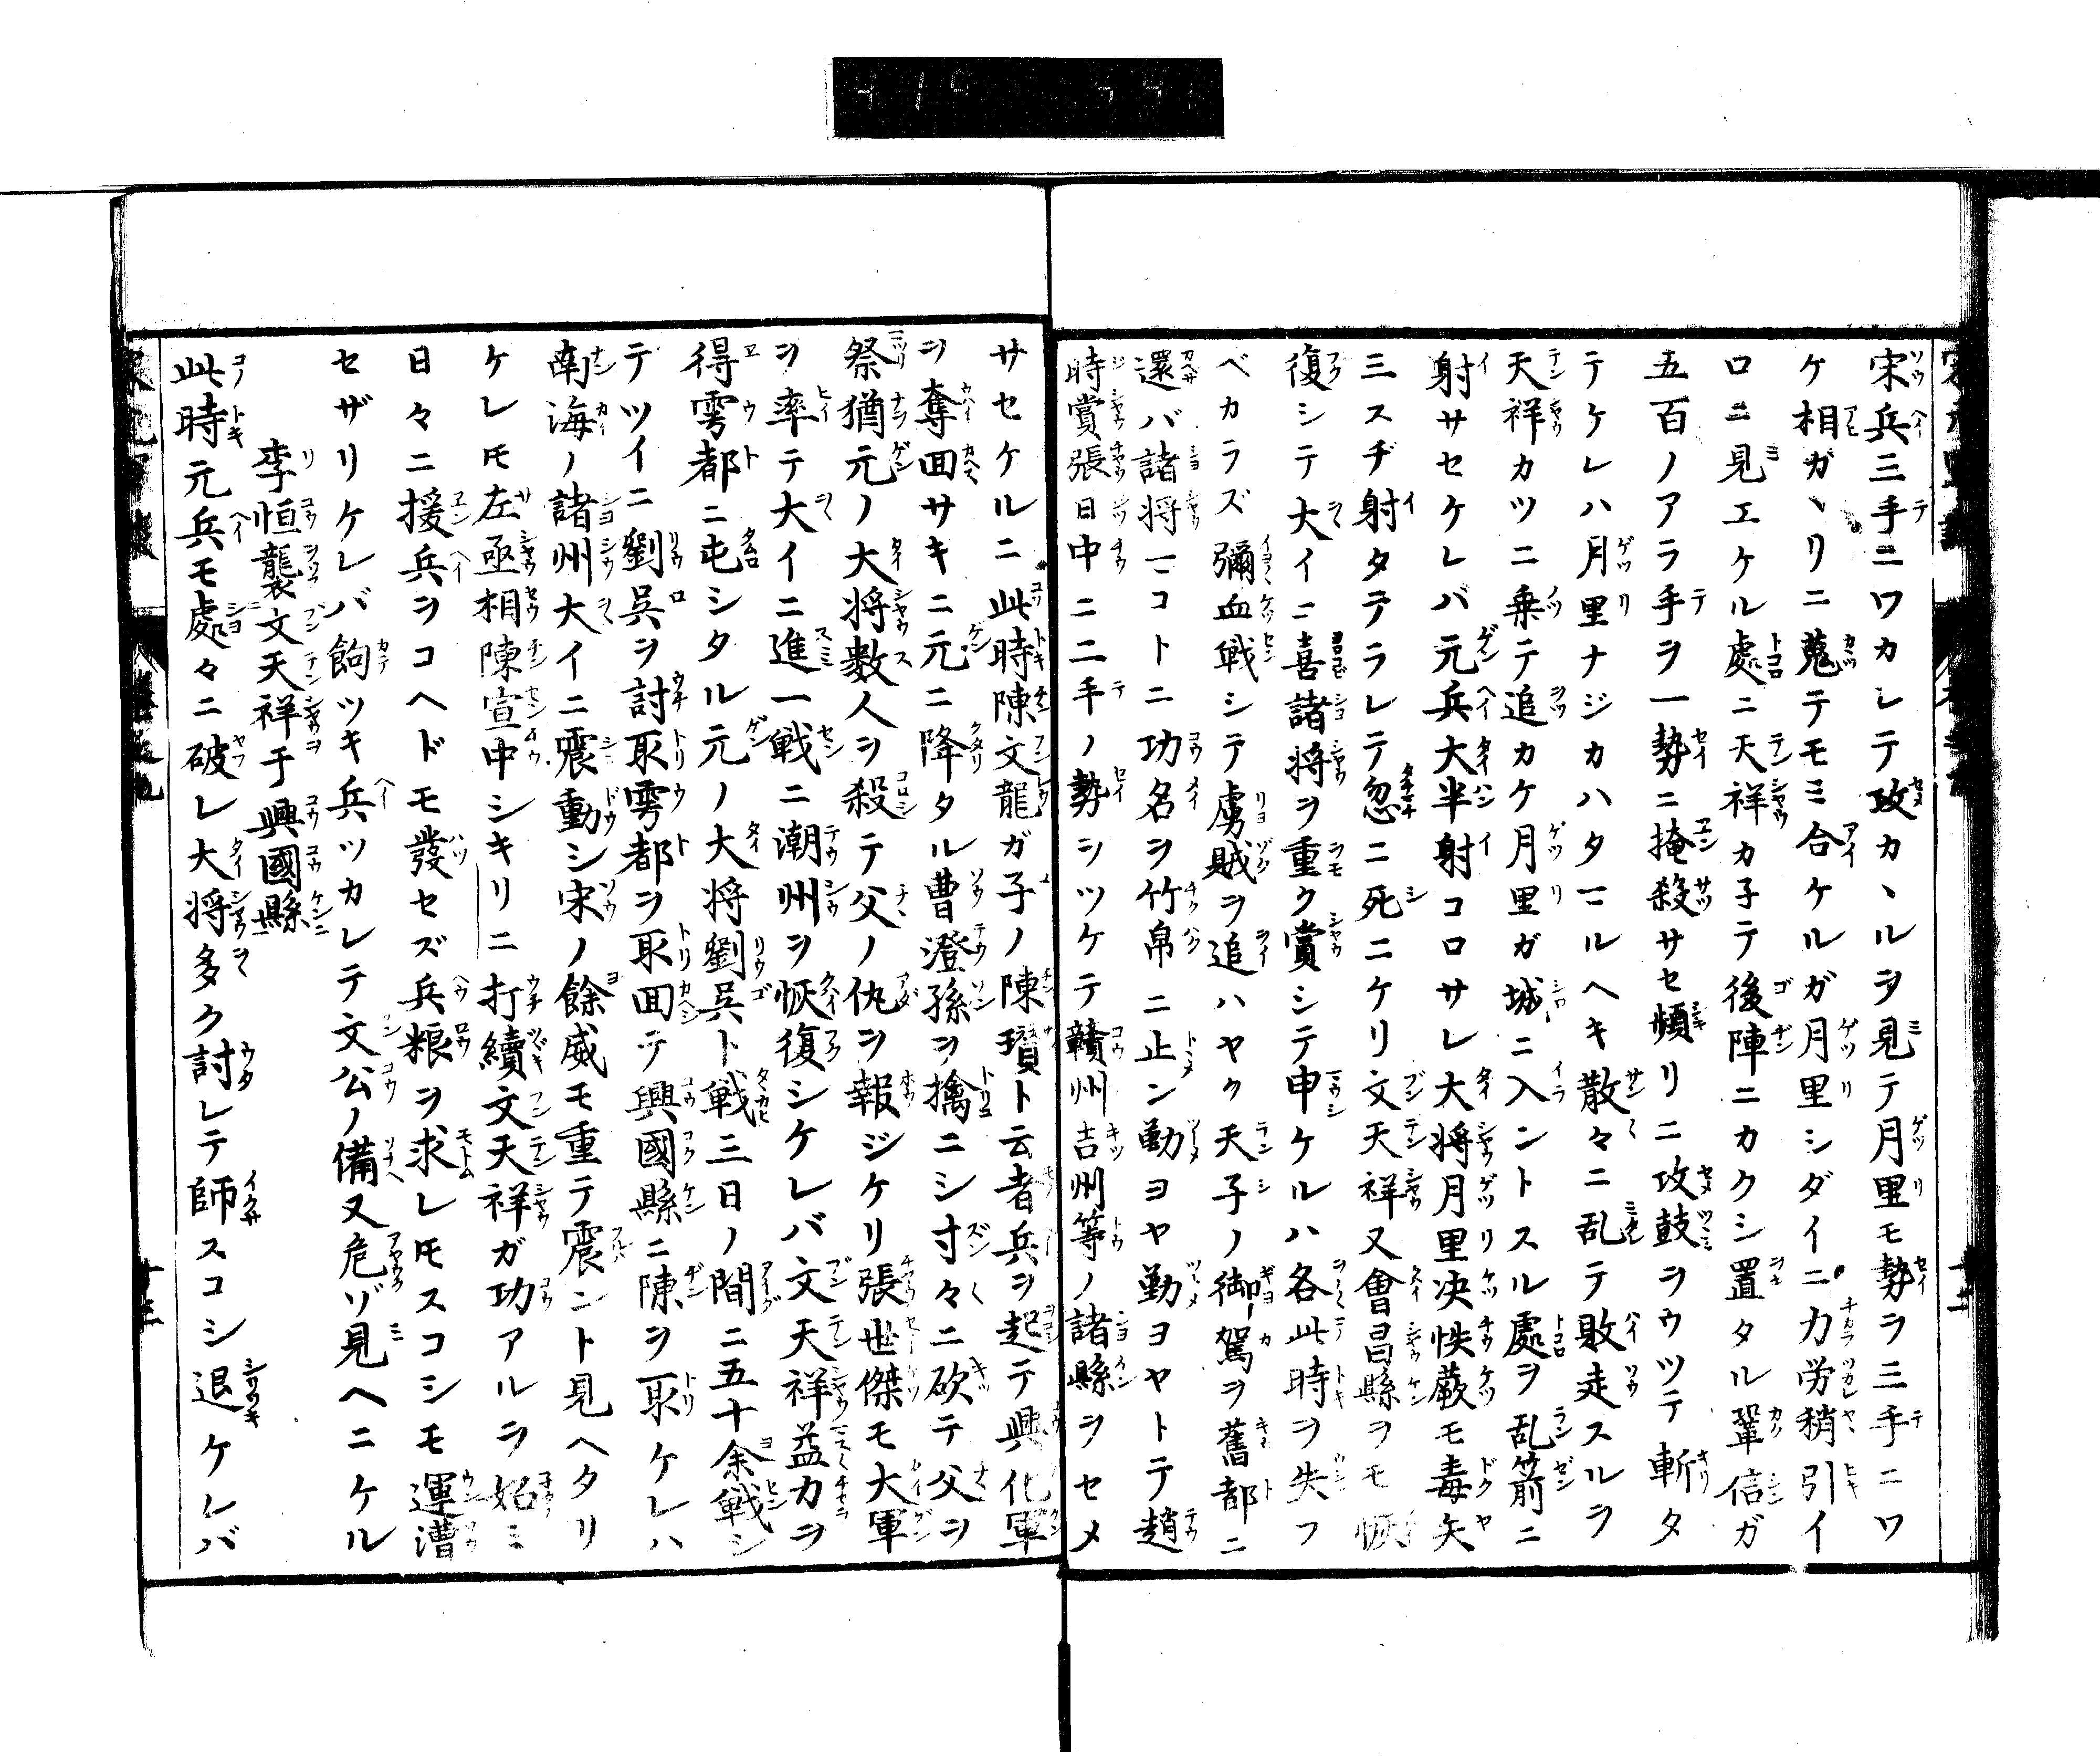 宋兵三手ニワカレテ攻カヽルヲ見テ月里モ勢ヲ三手ニワ
ケ相ガヽリニ蒐テモミ合ケルガ月里シダイニ力労稍引イ
ロニ見エケル處ニ天祥カ子テ後陣ニカクシ置タル鞏信ガ
五百ノアラ手ヲ一勢ニ掩殺サセ頻リニ攻鼓ヲウツテ斬タ
テケレハ月里ナジカハタマルヘキ散々ニ乱テ敗走スルヲ
天祥カツニ乗テ追カケ月里ガ城ニ入ントスル處ヲ乱箭ニ
射サセケレバ元兵大半射コロサレ大将月里决怢蕨モ毒矢
三スヂ射タテラレテ忽ニ死ニケリ文天祥又會昌縣ヲモ恢
復シテ大イニ喜諸将ヲ重ク賞シテ申ケルハ各此時ヲ失フ
ベカラズ彌血戦シテ虜賊ヲ追ハヤク天子ノ御駕ヲ舊都ニ
還バ諸将マコトニ功名ヲ竹帛ニ止ン勤ヨヤ勤ヨヤトテ趙
時賞張日中ニ二手ノ勢シツケテ贛州吉州等ノ諸縣ヲセメ
サセケルニ此時陳文龍ガ子ノ陳瓚ト云者兵ヲ起テ興化軍
ヲ奪回サキニ元ニ降タル曹澄孫ヲ擒ニシ寸々ニ砍テ父ヲ
祭猶元ノ大将数人ヲ殺テ父ノ仇ヲ報ジケリ張世傑モ大軍
ヲ率テ大イニ進一戦ニ潮州ヲ恢復シケレバ文天祥益力ヲ
得雩都ニ屯シタル元ノ大将劉呉ト戦三日ノ間ニ五十余戦シ
テツイニ劉呉ヲ討取雩都ヲ取回テ興國縣ニ陳ヲ取ケレハ
南海ノ諸州大イニ震動シ宋ノ餘威モ重テ震ント見ヘタリ
ケレ𪜈左亟相陳宣中シキリニ打續文天祥ガ功アルヲ妬ミ
日々ニ援兵ヲコヘドモ發セズ兵粮ヲ求レ𪜈スコシモ運漕
セザリケレバ餉ツキ兵ツカレテ文公ノ備又危ゾ見ヘニケル
李恒襲文天祥于興國縣
此時元兵モ處々ニ破レ大将多ク討レテ師スコシ退ケレバ